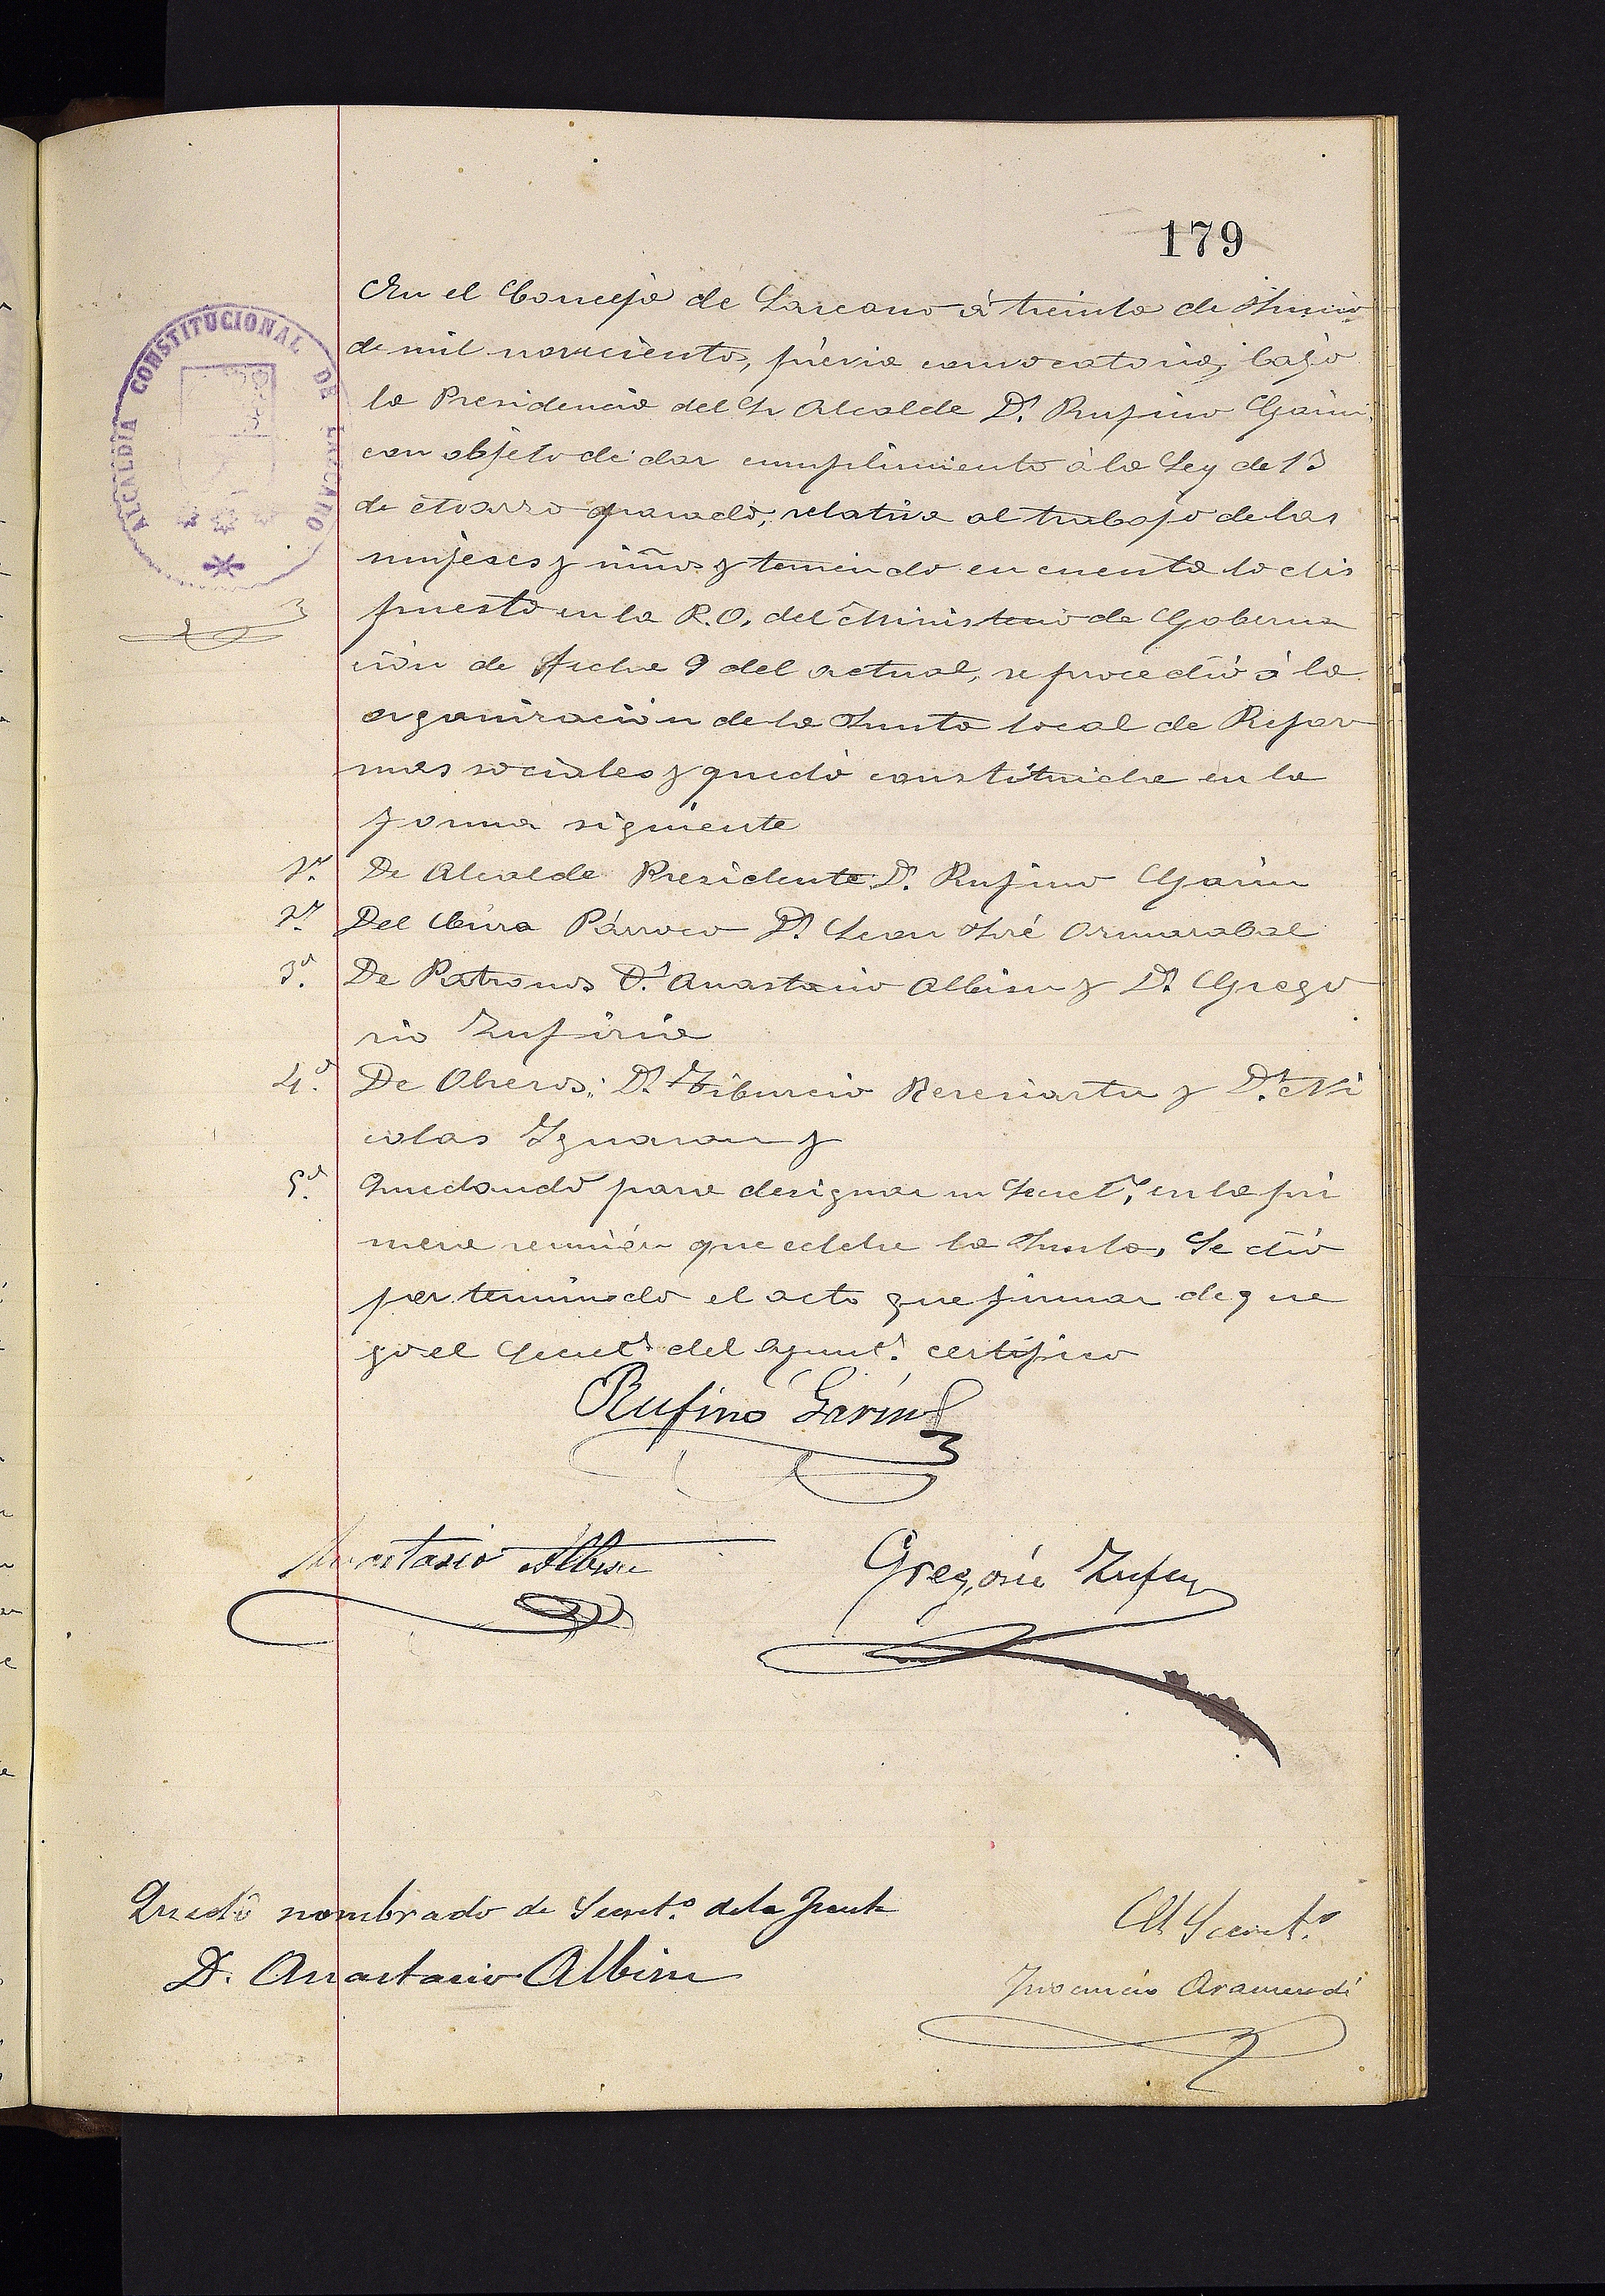 179
ALCALDIA CONSTITUCIONAL DE LAZCANO
En el Concejo de Lazcano á treinta de Junio
de mil novecientos, prévia convocatoria, bajo
la Presidencia del Sr Alcalde Dn. Rufino Garin
con objeto de dar cumplimiento á la Ley de 13
de Marzo pasado, relativa al trabajo de las
mujeres y niños y teniendo en cuenta lo dis
puesto en la R.O. del Ministerio de Goberna
ción de fecha 9 del actual, se procedió á la
organización de la Junta local de Refor
mas sociales y quedó constituida en la
forma siguiente
1º. De Alcalde Presidente Dn. Rufino Garin
2º. Del Cura Párroco Dn. Juan José Ormazabal
3º. De Patronos Dn. Anastasio Albisu y Dn. Grego
rio Zufiria
4º. De Obreros: Dn. Tiburcio Bereciartu y Dn. Ni
colas Iguaran y
5º. Quedando para designar un Secretº. en la pri
mera reunión que celebre la Junta, Se dió
por terminado el acto que firman de que
yo el Secretº. del Ayuntº. certifico
Rufino Garin
Anastasio Albisu
Gregorio
Quedó nombrado de Secretº. de la Junta
D. Anastasio Albisu
El Secretº.
Inocencio Aramendi